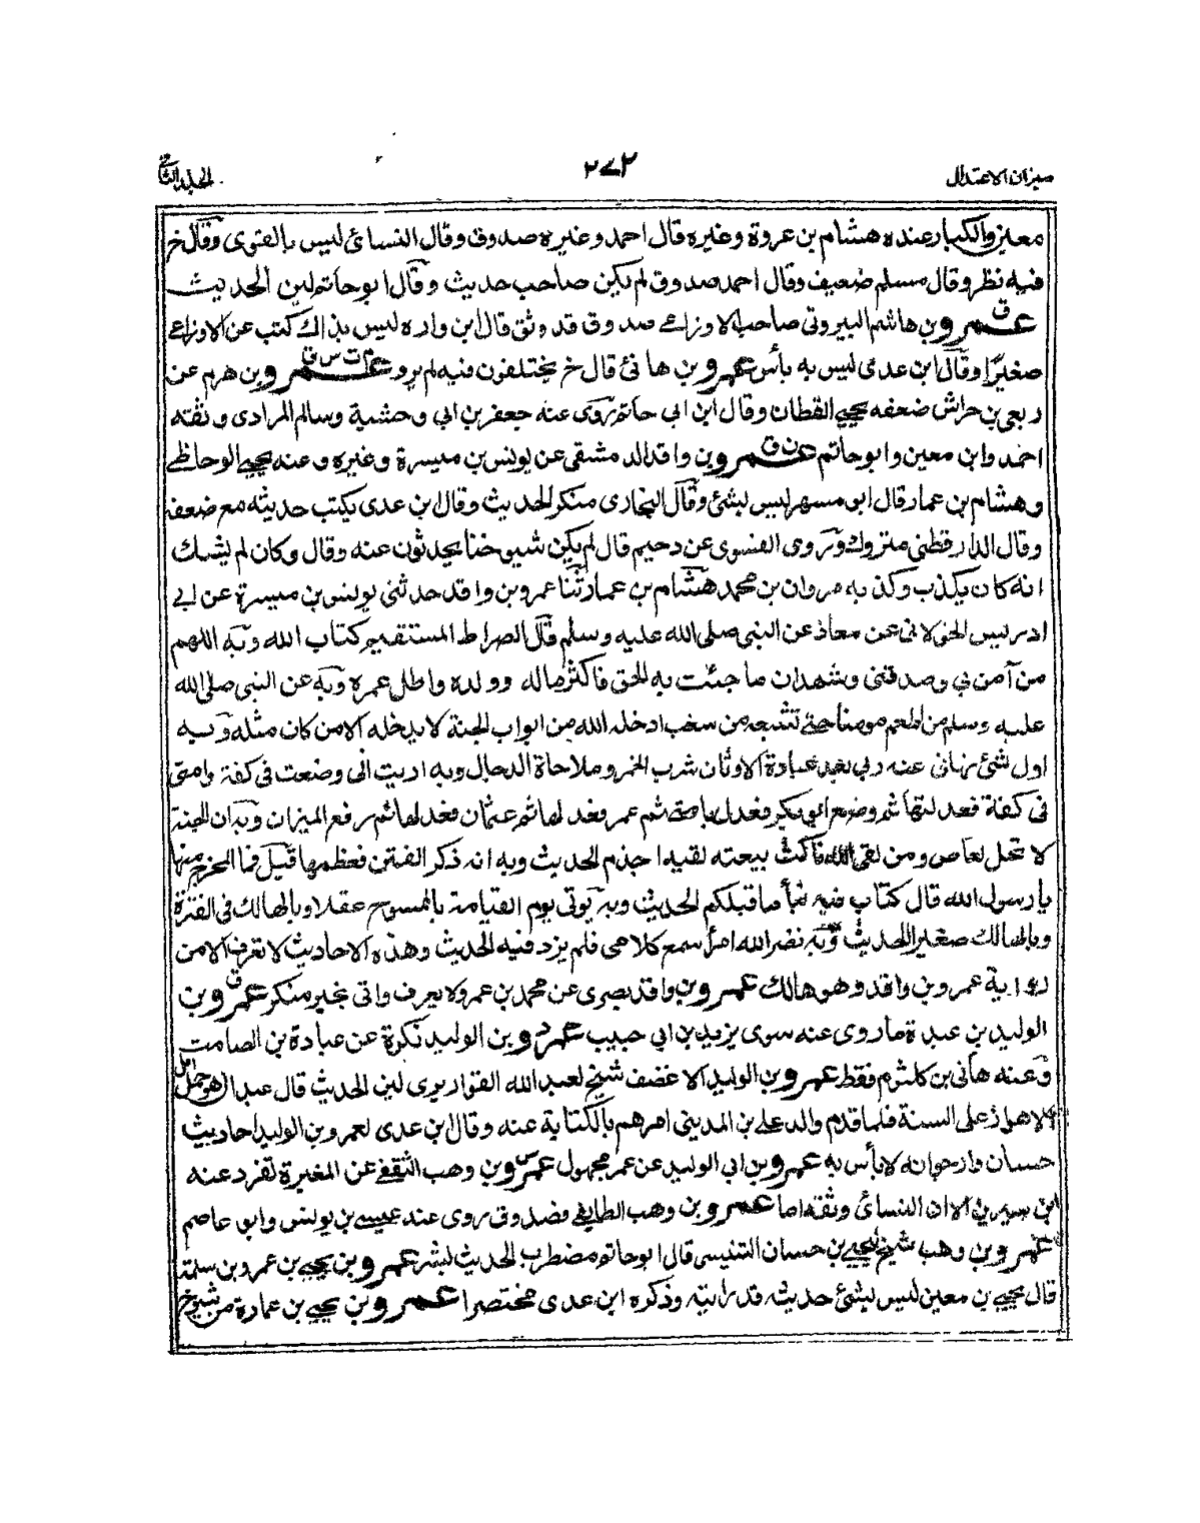 ميزان الاعتدال
٢٧٢
الجلد الثانى
معين والكبار عنده هشام بن عروة وغيره قال احمد وغيره صدوق وقال النسائى ليس بالقوى وقال خ
فيه نظر وقال مسلم ضعيف وقال احمد صدوق لم يكن صاحب حديث وقال ابو حاتم لين الحديث
عمرو بن هاشم البيروتى صاحب الاوزاعى صدوق قد وثق قال ابن واره ليس بذاك كتب عن الاوزاعى
صغيرا وقال ابن عدى ليس به بأس عمرو بن هانئ قال خ يختلفون فيه لم يرو عمرو بن هرم عن
ربعى بن حراش ضعفه يحيى القطان وقال ابن ابى حاتم روى عنه جعفر بن ابى وحشية وسالم المرادى وثقه
احمد وابن معين وابو حاتم عمرو بن واقد الدمشقى عن يونس بن ميسرة وغيره وعنه يحيى الوحاظى
وهشام بن عمار قال ابو مسهر ليس بشئ وقال البخارى منكر الحديث وقال ابن عدى يكتب حديثه مع ضعفه
وقال الدارقطنى متروك وروى الفسوى عن دحيم قال لم يكن شيوخنا يحدثون عنه وقال وكان لم يشك
انه كان يكذب وكذبه مروان بن محمد هشام بن عمار ثنا عمرو بن واقد حدثنى يونس بن ميسرة عن ابى
ادريس الخولانى عن معاذ عن النبى صلى الله عليه وسلم قال الصراط المستقيم كتاب الله وبه اللهم
من آمن بى وصدقنى وشهد ان ما جئت به الحق فاكثر ماله وولده واطل عمره وبه عن النبى صلى الله
عليه وسلم من اطعم مومنا حتى تشبعه من سغب ادخله الله من ابواب الجنة لا يدخله الا من كان مثله وبه
اول شئ نهانى عنه ربى بعد عبادة الاوثان شرب الخمر وملاحاة الرجال وبه اريت انى وضعت فى كفة وامتى
فى كفة فعدلتها ثم وضع ابو بكر فعدل بامتى ثم عمر فعدلها ثم عثمان فعدلها ثم رفع الميزان وبه ان الجنة
لا تحل لعاص ومن لقى الله ناكث بيعته لقيه اجذم الحديث وبه انه ذكر الفتن فعظمها قيل فما المخرج منها
يا رسول الله قال كتاب فيه نبأ ما قبلكم الحديث وبه يوتى يوم القيامة بالممسوح عقلا وبالهالك فى الفترة
وبالهالك صغيرا الحديث وبه نضر الله امرأ سمع كلامى فلم يزد فيه الحديث وهذه الاحاديث لا تعرف الا من
رواية عمرو بن واقد وهو هالك عمرو بن واقد بصرى عن محمد بن عمرو لا يعرف واتى بخبر منكر عمرو بن
الوليد بن عبدة ما روى عنه سوى يزيد بن ابى حبيب عمرو بن الوليد نكرة عن عبادة بن الصامت
وعنه هانى بن كلثوم فقط عمرو بن الوليد الاغضف شيخ لعبد الله القواريرى لين الحديث قال عبدان هو حمل اهل
الاهواز على السنة فلما قدم والد على بن المدينى امرهم بالكتابة عنه وقال ابن عدى لعمرو بن الوليد احاديث
حسان وارجو انه لا بأس به عمرو بن ابى الوليد عن عمر مجهول عمرو بن وهب الثقفى عن المغيرة تفرد عنه
ابن سيرين الا ان النسائى وثقه اما عمرو بن وهب الطايفى فصدوق روى عنه عيسى بن يونس وابو عاصم
عمرو بن وهب شيخ ليحيى بن حسان التنيسى قال ابو حاتم مضطرب الحديث لبشر عمرو بن يحيى بن عمرو بن سلمة
قال يحيى بن معين ليس بشئ حديثه قد رايته وذكره ابن عدى مختصرا عمرو بن يحيى بن عمارة من شيوخ